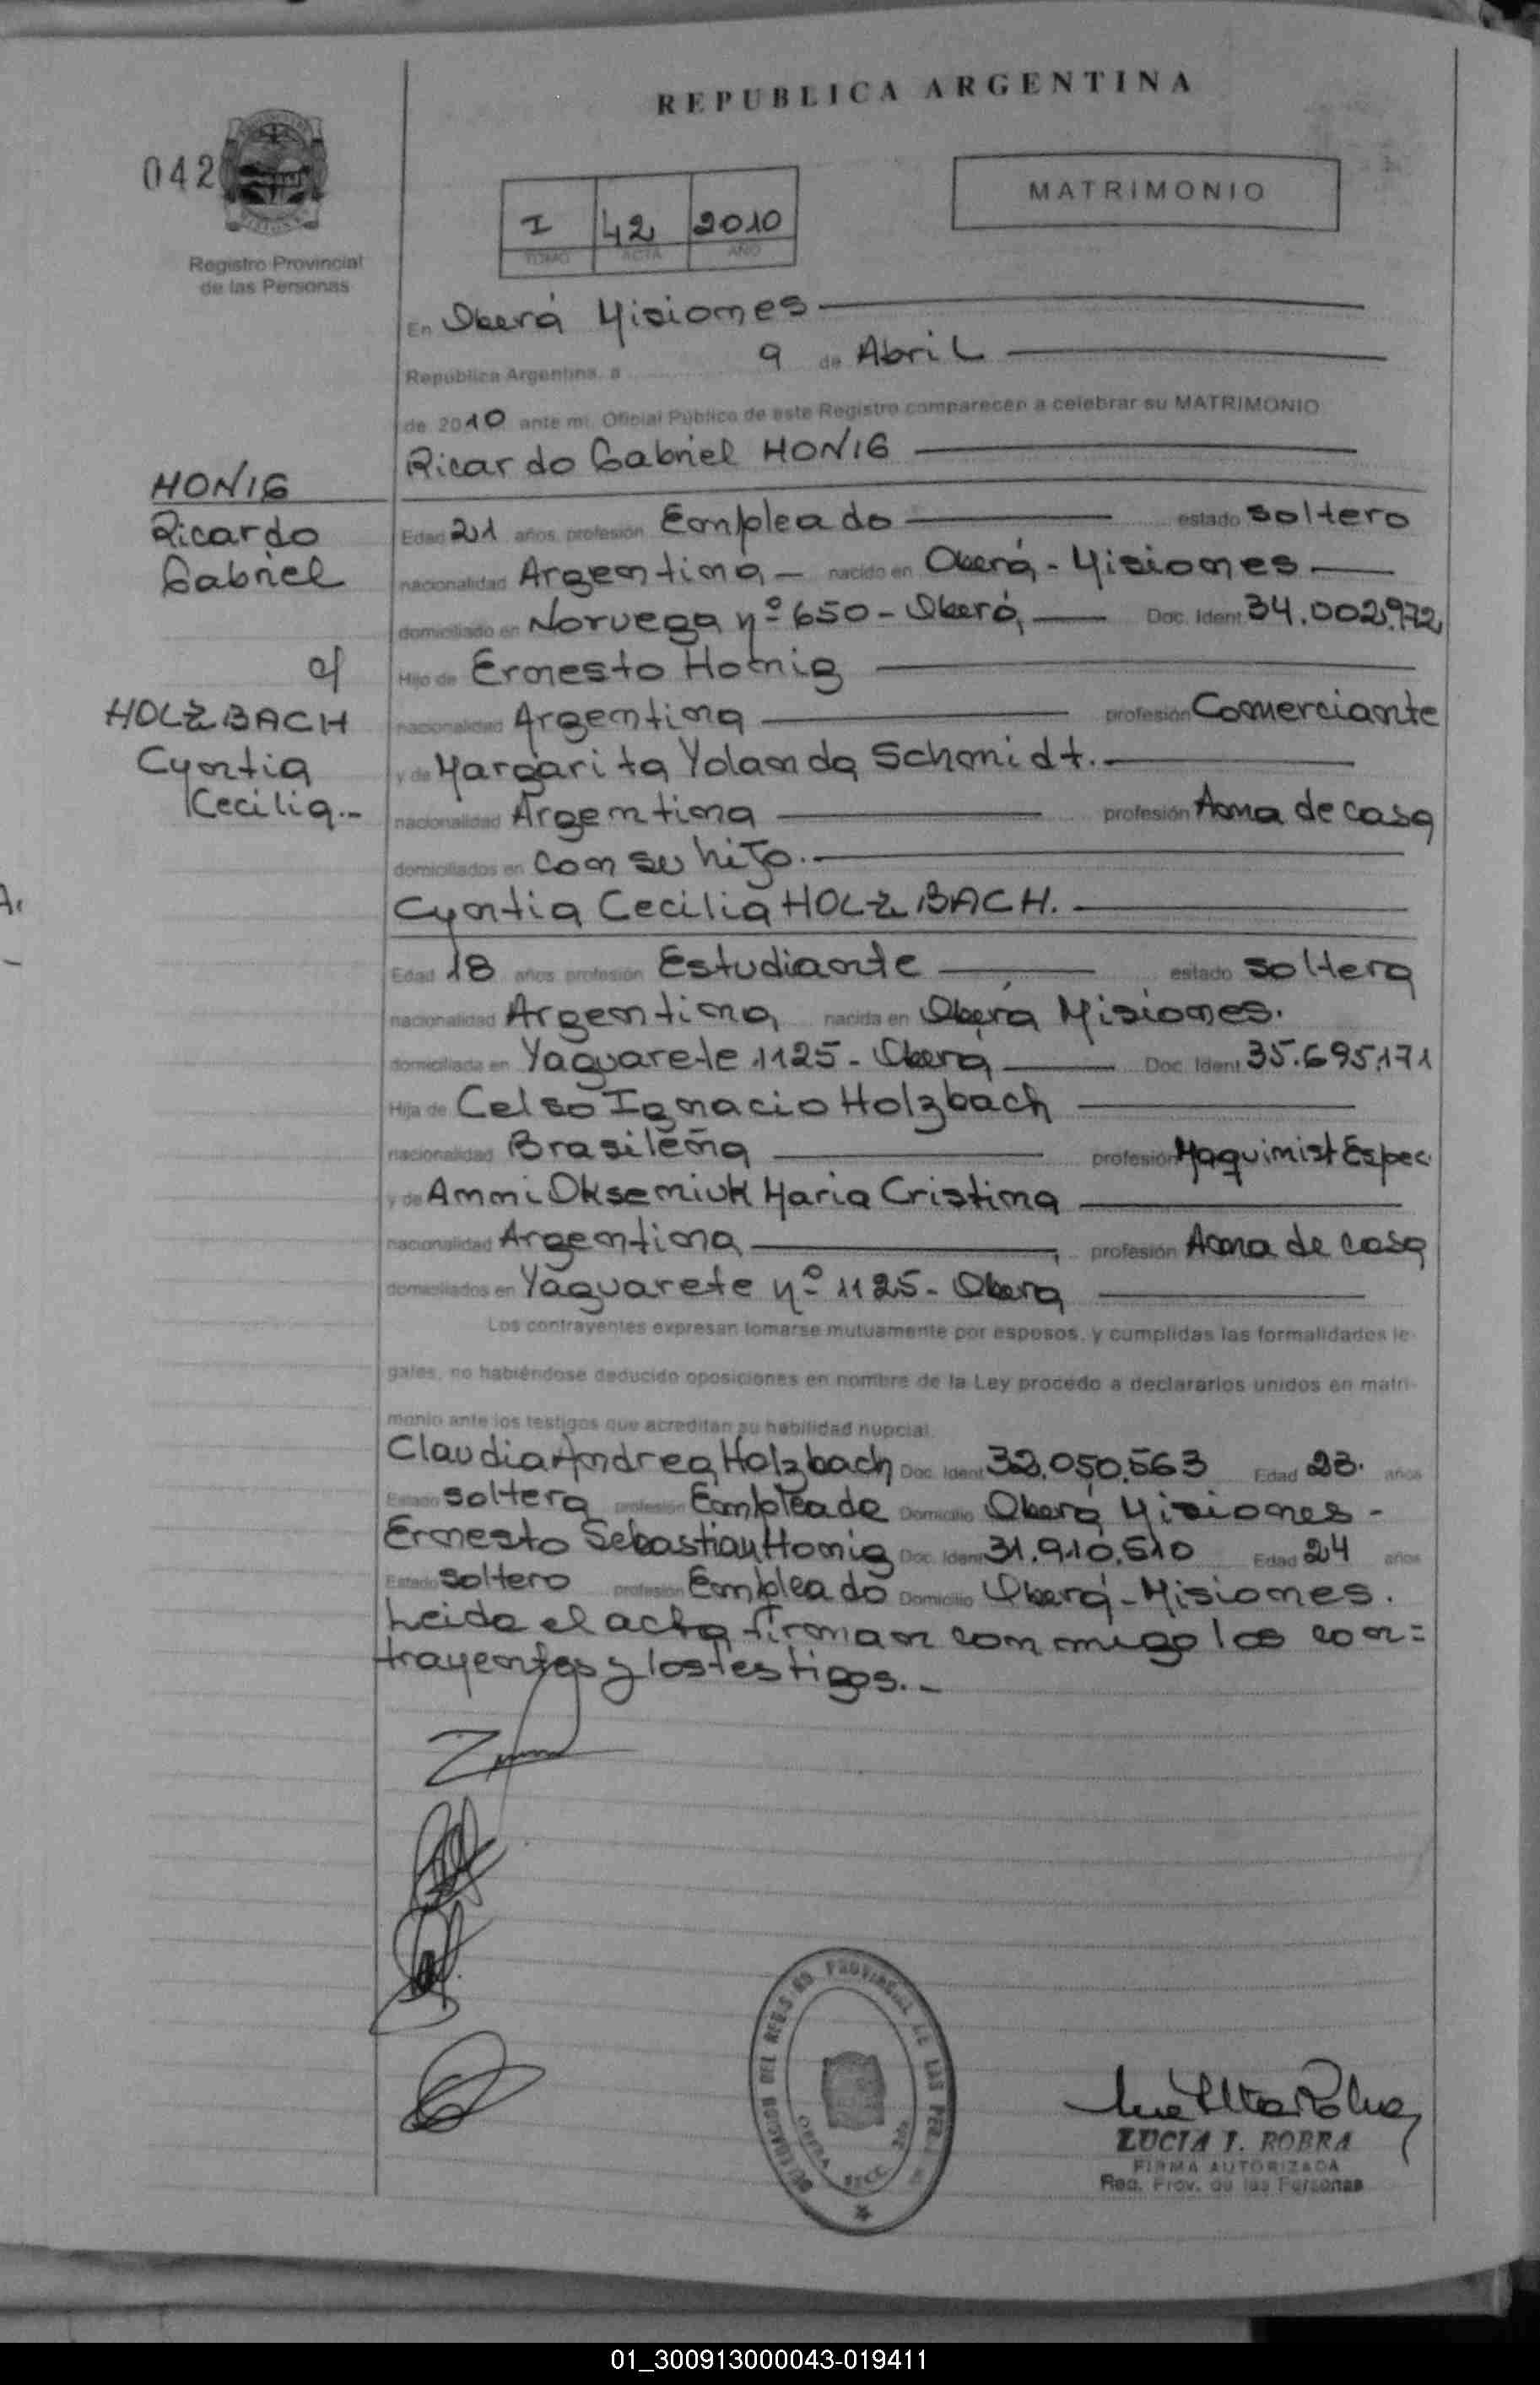 REPUBLICA ARGENTINA
042
MATRIMONIO
I 42 2010
TOMO ACTA AÑO
Registro Provincial
de las Personas
En Oberá Misiones
República Argentina, a 9 de Abril
de 2010 ante mi, Oficial Público de este Registro comparecen a celebrar su MATRIMONIO
Ricardo Gabriel HONIG
HONIG
Ricardo
Gabriel
c/
HOLZBACH
Cyntia
Cecilia.-
Edad 21 años profesión Empleado estado soltero
nacionalidad Argentina - nacido en Oberá - Misiones
domiciliado en Noruega nº 650 - Oberá, Doc. Ident 34.002.972
Hijo de Ernesto Honig
nacionalidad Argentina profesión Comerciante
y de Margarita Yolanda Schmidt.
nacionalidad Argentina profesión Ama de casa
domiciliados en con su hijo.
Cyntia Cecilia HOLZBACH.
Edad 18 años profesión Estudiante estado soltera
nacionalidad Argentina, nacida en Oberá Misiones.
domiciliada en Yaguarete 1125 - Oberá Doc. Ident 35.695.171
Hija de Celso Ignacio Holzbach
nacionalidad Brasileña profesión Maquinist Espec.
y de Ammi Oksemiuk Maria Cristina
nacionalidad Argentina profesión Ama de casa
domiciliados en Yaguarete nº 1125 - Obera
Los contrayentes expresan tomarse mutuamente por esposos, y cumplidas las formalidades le-
gales, no habiéndose deducido oposiciones en nombre de la Ley procedo a declararlos unidos en matri-
monio ante los testigos que acreditan su habilidad nupcial.
Claudia Andrea Holzbach Doc. Ident 32.050.563 Edad 23. años
Estado soltera profesión Empleada Domicilio Oberá Misiones -
Ernesto Sebastian Honig Doc. Ident 31.910.510 Edad 24 años
Estado soltero profesión Empleado Domicilio Oberá - Misiones.
Leida el acta firman conmigo los con=
trayentes y los testigos.-
DELEGACION DEL REGISTRO PROVINCIAL DE LAS PER
OBERA SECC
LUCIA I. ROBRA
FIRMA AUTORIZADA
Reg. Prov. de las Personas
01_300913000043-019411